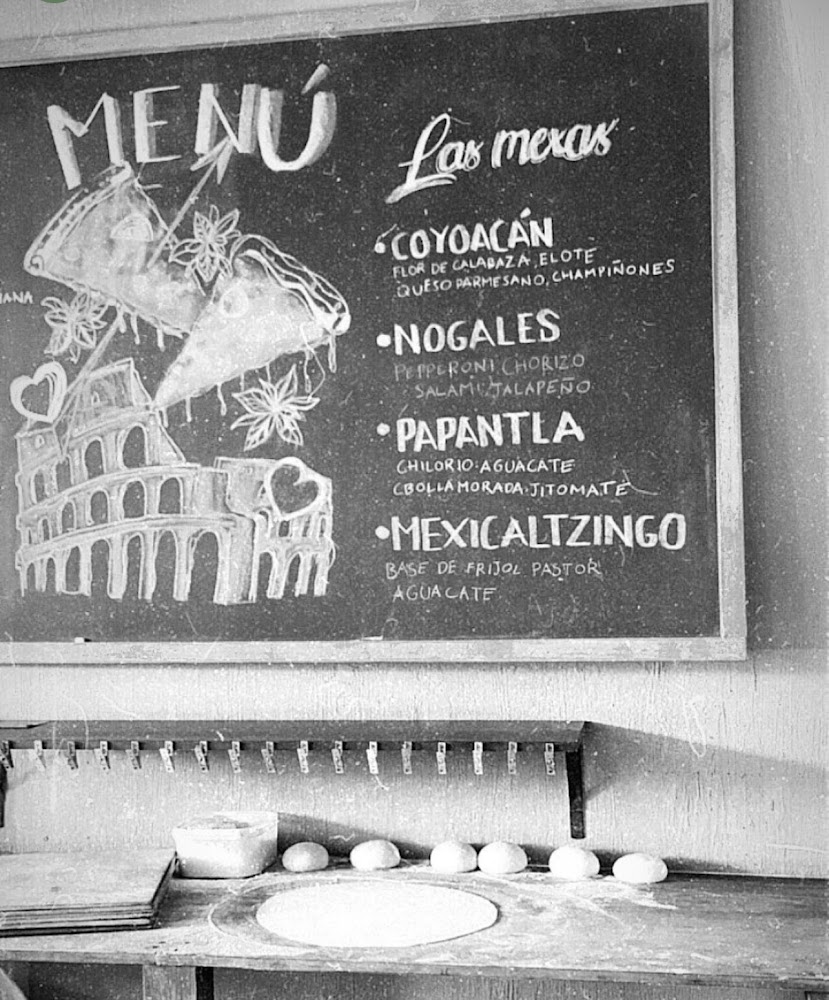 MENÚ
IANA
Las mexas
• COYOACÁN
FLOR DE CALABAZA, ELOTE
QUESO PARMESANO, CHAMPIÑONES
• NOGALES
PEPPERONI CHORIZO
SALAMI, JALAPEÑO
• PAPANTLA
CHILORIO. AGUACATE
CBOLLA MORADA. JITOMATE
• MEXICALTZINGO
BASE DE FRIJOL PASTOR
AGUACATE